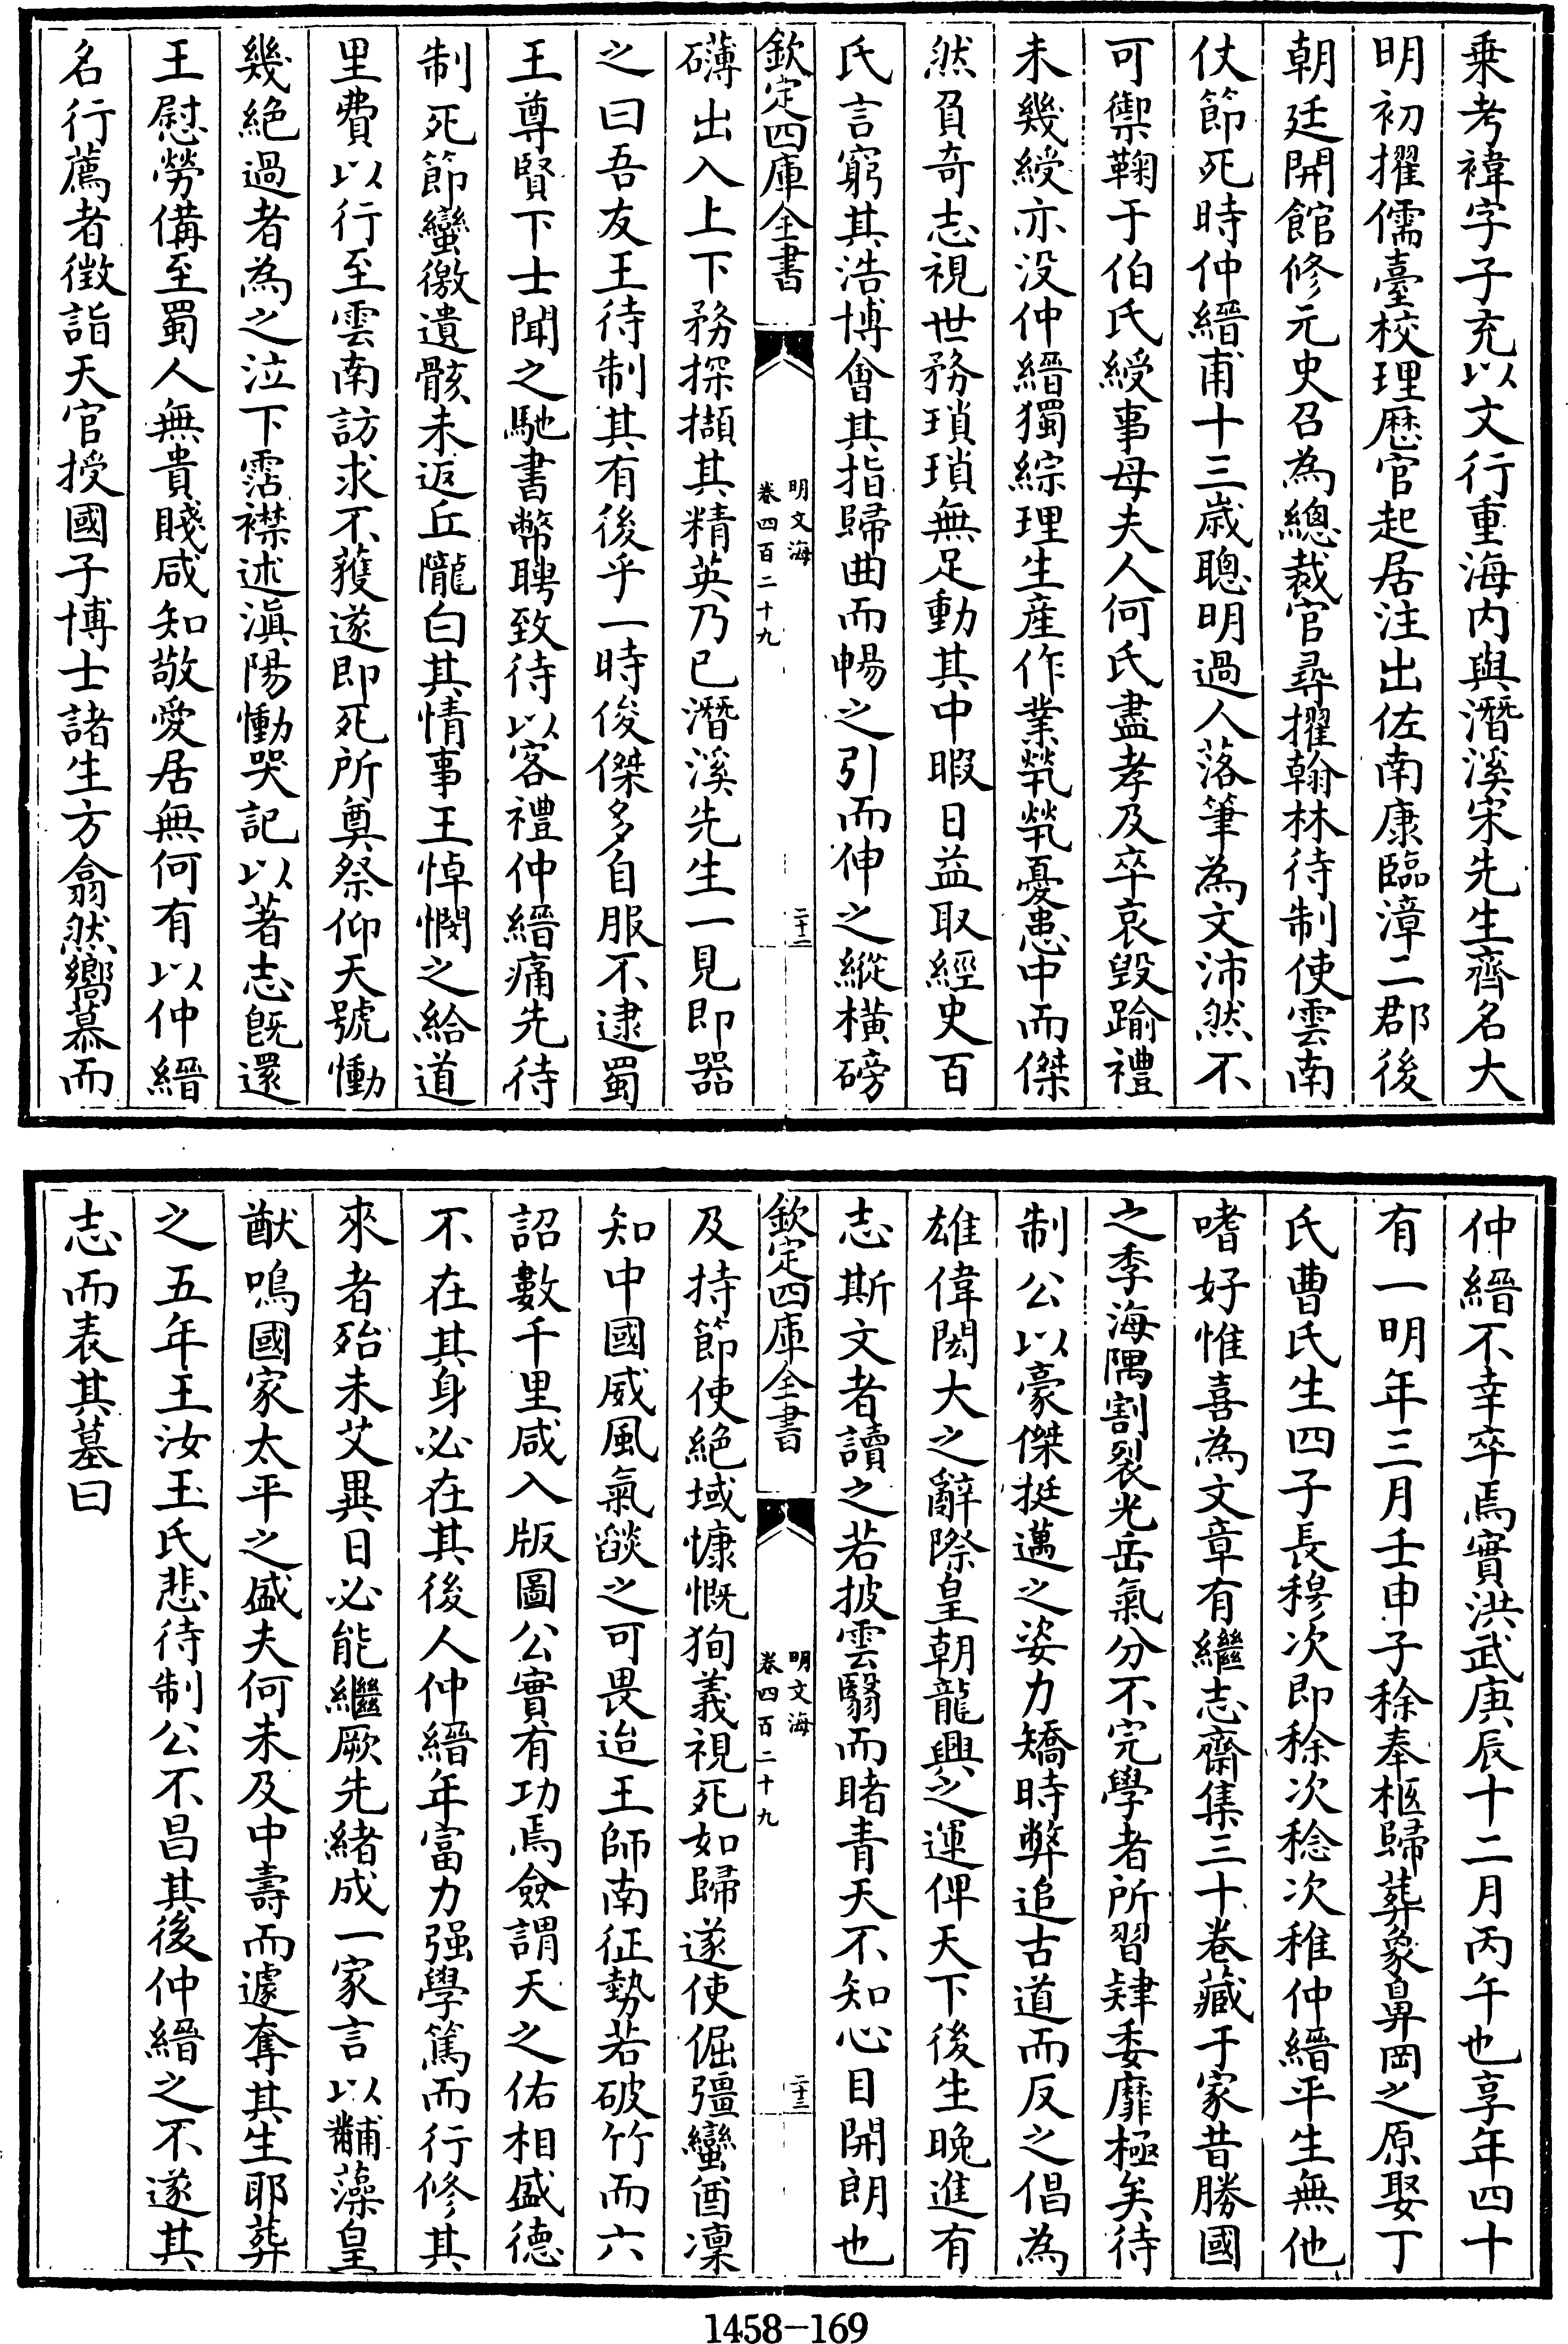 乗考褘字子充以文行重海内與潛溪宋先生齊名大
明初擢儒臺校理歴官起居注出佐南康臨漳二郡後
朝廷開館修元史召為總裁官尋擢翰林待制使雲南
仗節死時仲縉甫十三歳聰明過人落筆為文沛然不
可禦鞠于伯氏綬事母夫人何氏盡孝及卒哀毁踰禮
未幾綬亦没仲縉獨綜理生産作業煢煢憂患中而傑
然負奇志視世務瑣瑣無足動其中暇日益取經史百
氏言窮其浩博會其指歸曲而暢之引而伸之縱橫磅
欽定四庫全書
明文海
卷四百二十九
二十二
礴出入上下務探擷其精英乃已潛溪先生一見即器
之曰吾友王待制其有後乎一時俊傑多自服不逮蜀
王尊賢下士聞之馳書幣聘致待以客禮仲縉痛先待
制死節蠻徼遺骸未返丘隴白其情事王悼憫之給道
里費以行至雲南訪求不獲遂即死所奠祭仰天號慟
幾絶過者為之泣下霑襟述滇陽慟哭記以著志旣還
王慰勞備至蜀人無貴賤咸知敬愛居無何有以仲縉
名行薦者徴詣天官授國子博士諸生方翕然嚮慕而
仲縉不幸卒焉實洪武庚辰十二月丙午也享年四十
有一明年三月壬申子稌奉柩歸葬象鼻岡之原娶丁
氏曹氏生四子長穆次即稌次稔次稚仲縉平生無他
嗜好惟喜為文章有繼志齋集三十卷藏于家昔勝國
之季海隅割裂光岳氣分不完學者所習肄委靡極矣待
制公以豪傑挺邁之姿力矯時弊追古道而反之倡為
雄偉閎大之辭際皇朝龍興之運俾天下後生晚進有
志斯文者讀之若披雲翳而睹青天不知心目開朗也
欽定四庫全書
明文海
卷四百二十九
二十三
及持節使絶域慷慨狥義視死如歸遂使倔彊蠻酋凜
知中國威風氣燄之可畏迨王師南征勢若破竹而六
詔數千里咸入版圖公實有功焉僉謂天之佑相盛德
不在其身必在其後人仲縉年富力强學篤而行修其
來者殆未艾異日必能繼厥先緒成一家言以黼藻皇
猷鳴國家太平之盛夫何未及中壽而遽奪其生耶葬
之五年王汝玉氏悲待制公不昌其後仲縉之不遂其
志而表其墓曰
1458-169